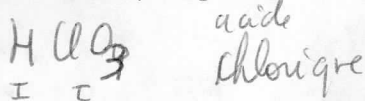 HClO3 acide
I I chlorique